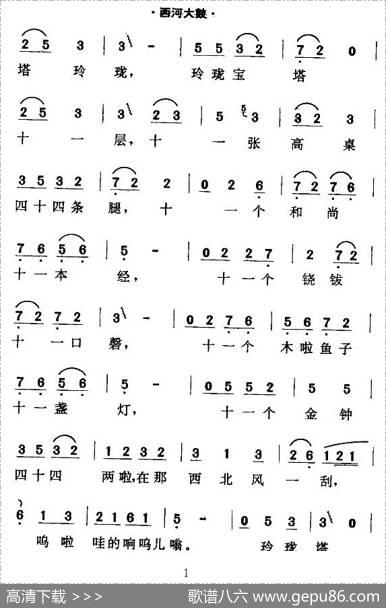 ·西河大鼓·
2 5 3 3 - | 5 5 3 2 | 7 2 0 |
塔 玲 珑， 玲 珑 宝 塔
| 2 5 3 | 3 2 3 | 5 5 3 | 3 2 3 |
十 一 层， 十 一 张 高 桌
3 5 3 2 | 7 2 2 | 0 2 6 | 7 2 7 6 |
四 十 四 条 腿， 十 一 个 和 尚
7 6 5 6 | 5 - | 0 2 2 7 | 2 7 2 |
十 一 本 经， 十 一 个 铙 钹
7 2 7 2 | 3 - | 0 2 7 6 | 5 6 7 2 |
十 一 口 磬， 十 一 个 木 啦 鱼 子
7 6 5 6 | 5 - | 0 5 5 2 | 5 5 |
十 一 盏 灯， 十 一 个 金 钟
3 5 3 2 | 1 2 3 2 | 3 1 3 | 2 6 1 2 1 |
四 十 四 两 啦，在 那 西 北 风 一 刮，
6 1 3 | 2 1 6 1 | 5 - | 0 5 3 | 3 3 |
呜 啦 哇 的 响 呜 儿 嗡。 玲 珑 塔
1
高清下载 >>>
歌谱八六 www.gepu86.com